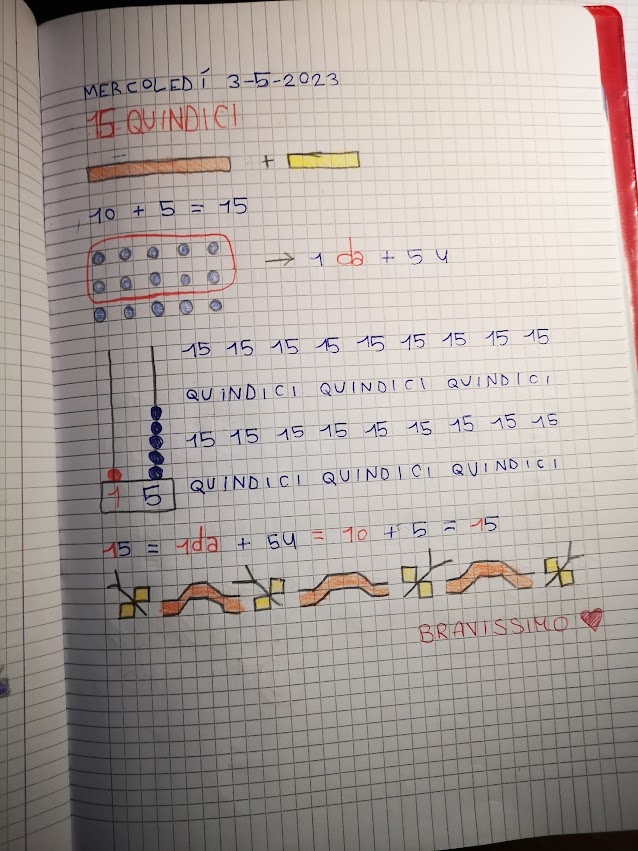 MERCOLEDÍ 3-5-2023
15 QUINDICI
+
10 + 5 = 15
→ 1 da + 5 u
15 15 15 15 15 15 15 15 15
QUINDICI QUINDICI QUINDICI
15 15 15 15 15 15 15 15 15
QUINDICI QUINDICI QUINDICI
1 5
15 = 1da + 5u = 10 + 5 = 15
BRAVISSIMO ♥